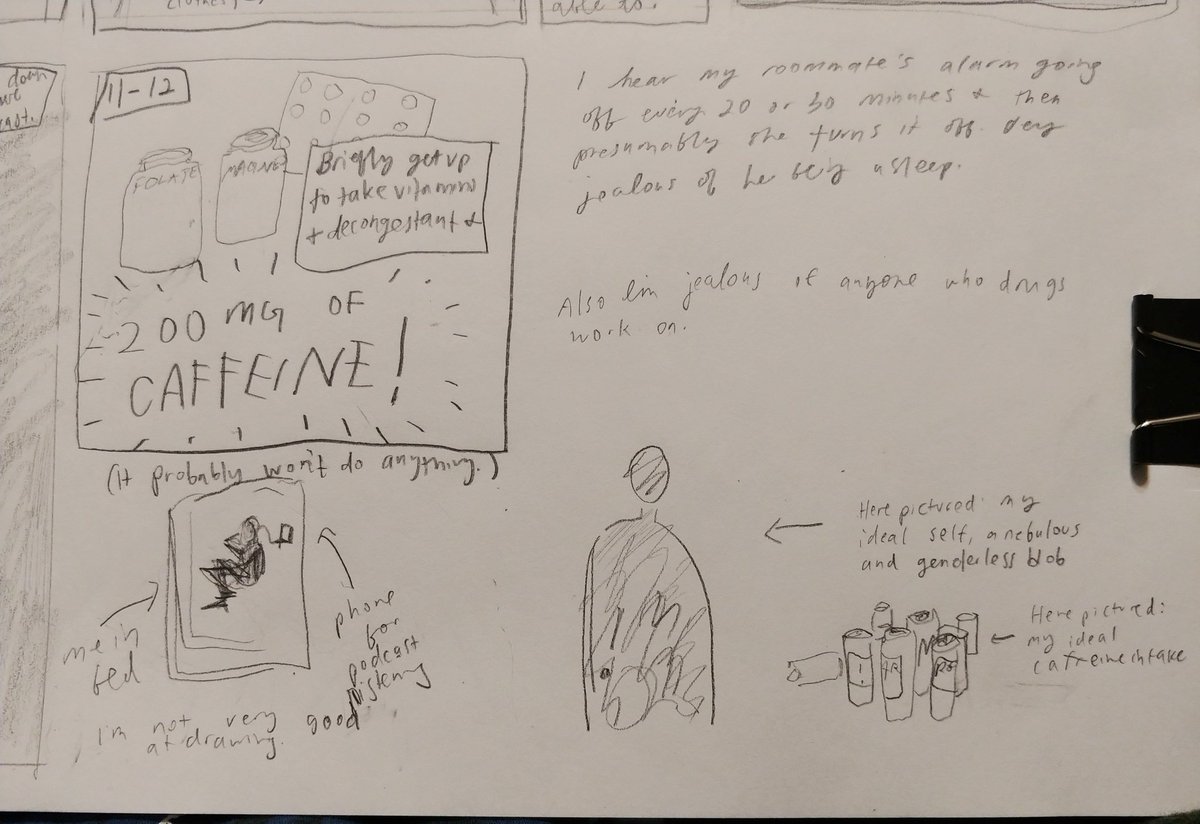 clothes
able to.
down
we
11-12
FOLATE
Briefly get up
to take vitamins
+ decongestant +
200 MG OF
CAFFEINE!
(It probably won't do anything.)
me in
bed
phone
for
podcast
listening
I'm not very good
at drawing.
I hear my roommate's alarm going
off every 20 or 30 minutes + then
presumably she turns it off. Very
jealous of her being asleep.
Also I'm jealous of anyone who drugs
work on.
Here pictured: my
ideal self, a nebulous
and genderless blob
Here pictured:
my ideal
caffeine intake